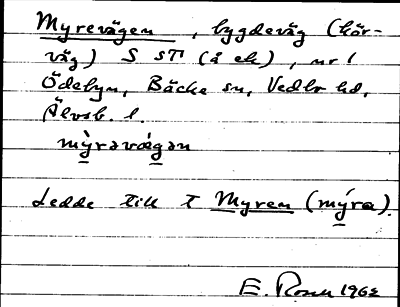 Myrevägen, bygdeväg (kör-
väg) S ST (å ek), nr 1
Ödebyn, Bäcke sn, Vedbo hd,
Älvsb. l.
mỳ̱rəvæ̱gən
Ledde till T Myren (mý̱ra).
E. Rosén 1962